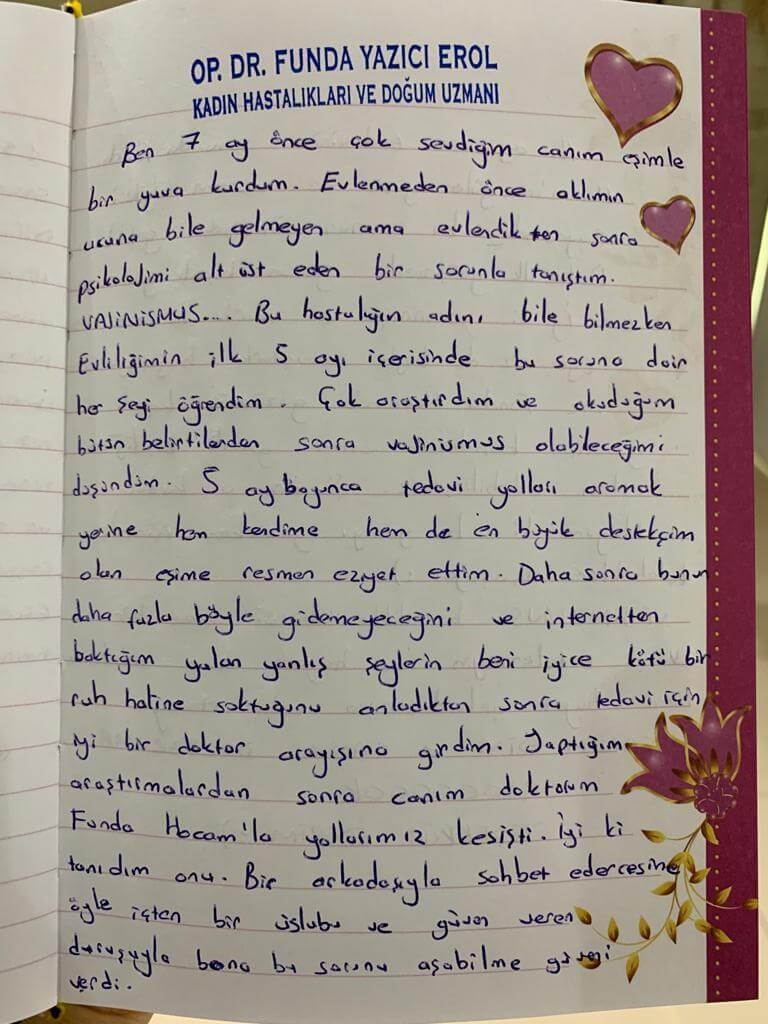 OP. DR. FUNDA YAZICI EROL
KADIN HASTALIKLARI VE DOĞUM UZMANI
Ben 7 ay önce çok sevdiğim canım eşimle
bir yuva kurdum. Evlenmeden önce aklımın
ucuna bile gelmeyen ama evlendikten sonra
psikolojimi alt üst eden bir sorunla tanıştım.
VAJİNİSMUS.... Bu hastalığın adını bile bilmezken
Evliliğimin ilk 5 ayı içerisinde bu soruna dair
her şeyi öğrendim. Çok araştırdım ve okuduğum
bütün belirtilerden sonra vajinismus olabileceğimi
düşündüm. 5 ay boyunca tedavi yolları aramak
yerine hem kendime hem de en büyük destekçim
olan eşime resmen eziyet ettim. Daha sonra bunun
daha fazla böyle gidemeyeceğini ve internetten
baktığım yalan yanlış şeylerin beni iyice kötü bir
ruh haline soktuğunu anladıktan sonra tedavi için
iyi bir doktor arayışına girdim. Yaptığım
araştırmalardan sonra canım doktorum
Funda Hocam'la yollarımız kesişti. İyi ki
tanıdım onu. Bir arkadaşıyla sohbet edercesine
öyle içten bir üslubu ve güven veren
duruşuyla bana bu sorunu aşabilme güveni
verdi.